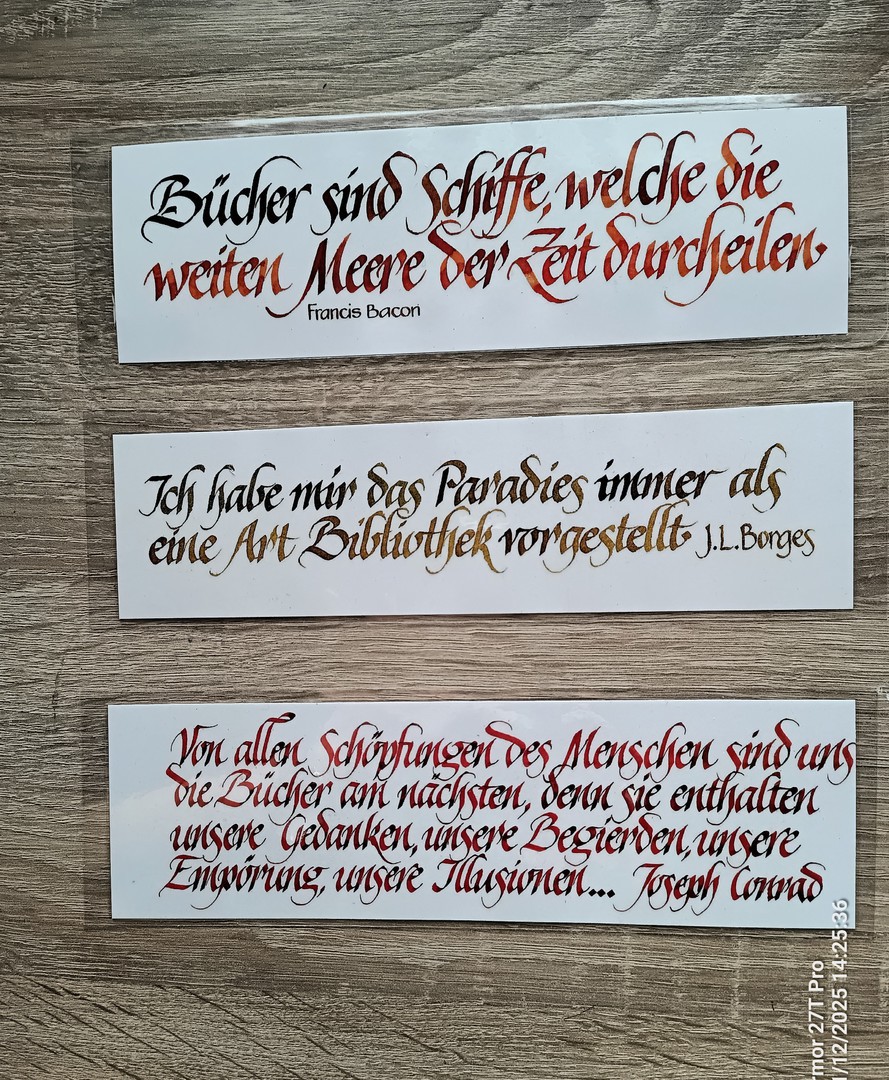 Bücher sind Schiffe, welche die
weiten Meere der Zeit durcheilen.
Francis Bacon
Ich habe mir das Paradies immer als
eine Art Bibliothek vorgestellt. J.L.Borges
Von allen Schöpfungen des Menschen sind uns
die Bücher am nächsten, denn sie enthalten
unsere Gedanken, unsere Begierden, unsere
Empörung, unsere Illusionen... Joseph Conrad
rmor 27T Pro
/12/2025 14:25:36